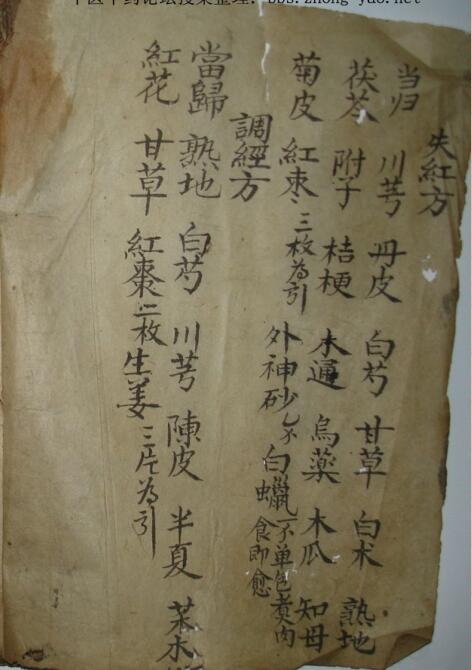 中医中药论坛搜集整理: bbs.zhong-yao.net
失紅方
当归 川芎 丹皮 白芍 甘草 白术 熟地
茯苓 附子 桔梗 木通 烏藥 木瓜 知母
菊皮 紅枣 三枚為引 外神砂乙不 白蠟一不单包煑肉食即愈
調經方
當歸 熟地 白芍 川芎 陳皮 半夏
紅花 甘草 紅棗二枚 生姜三片為引